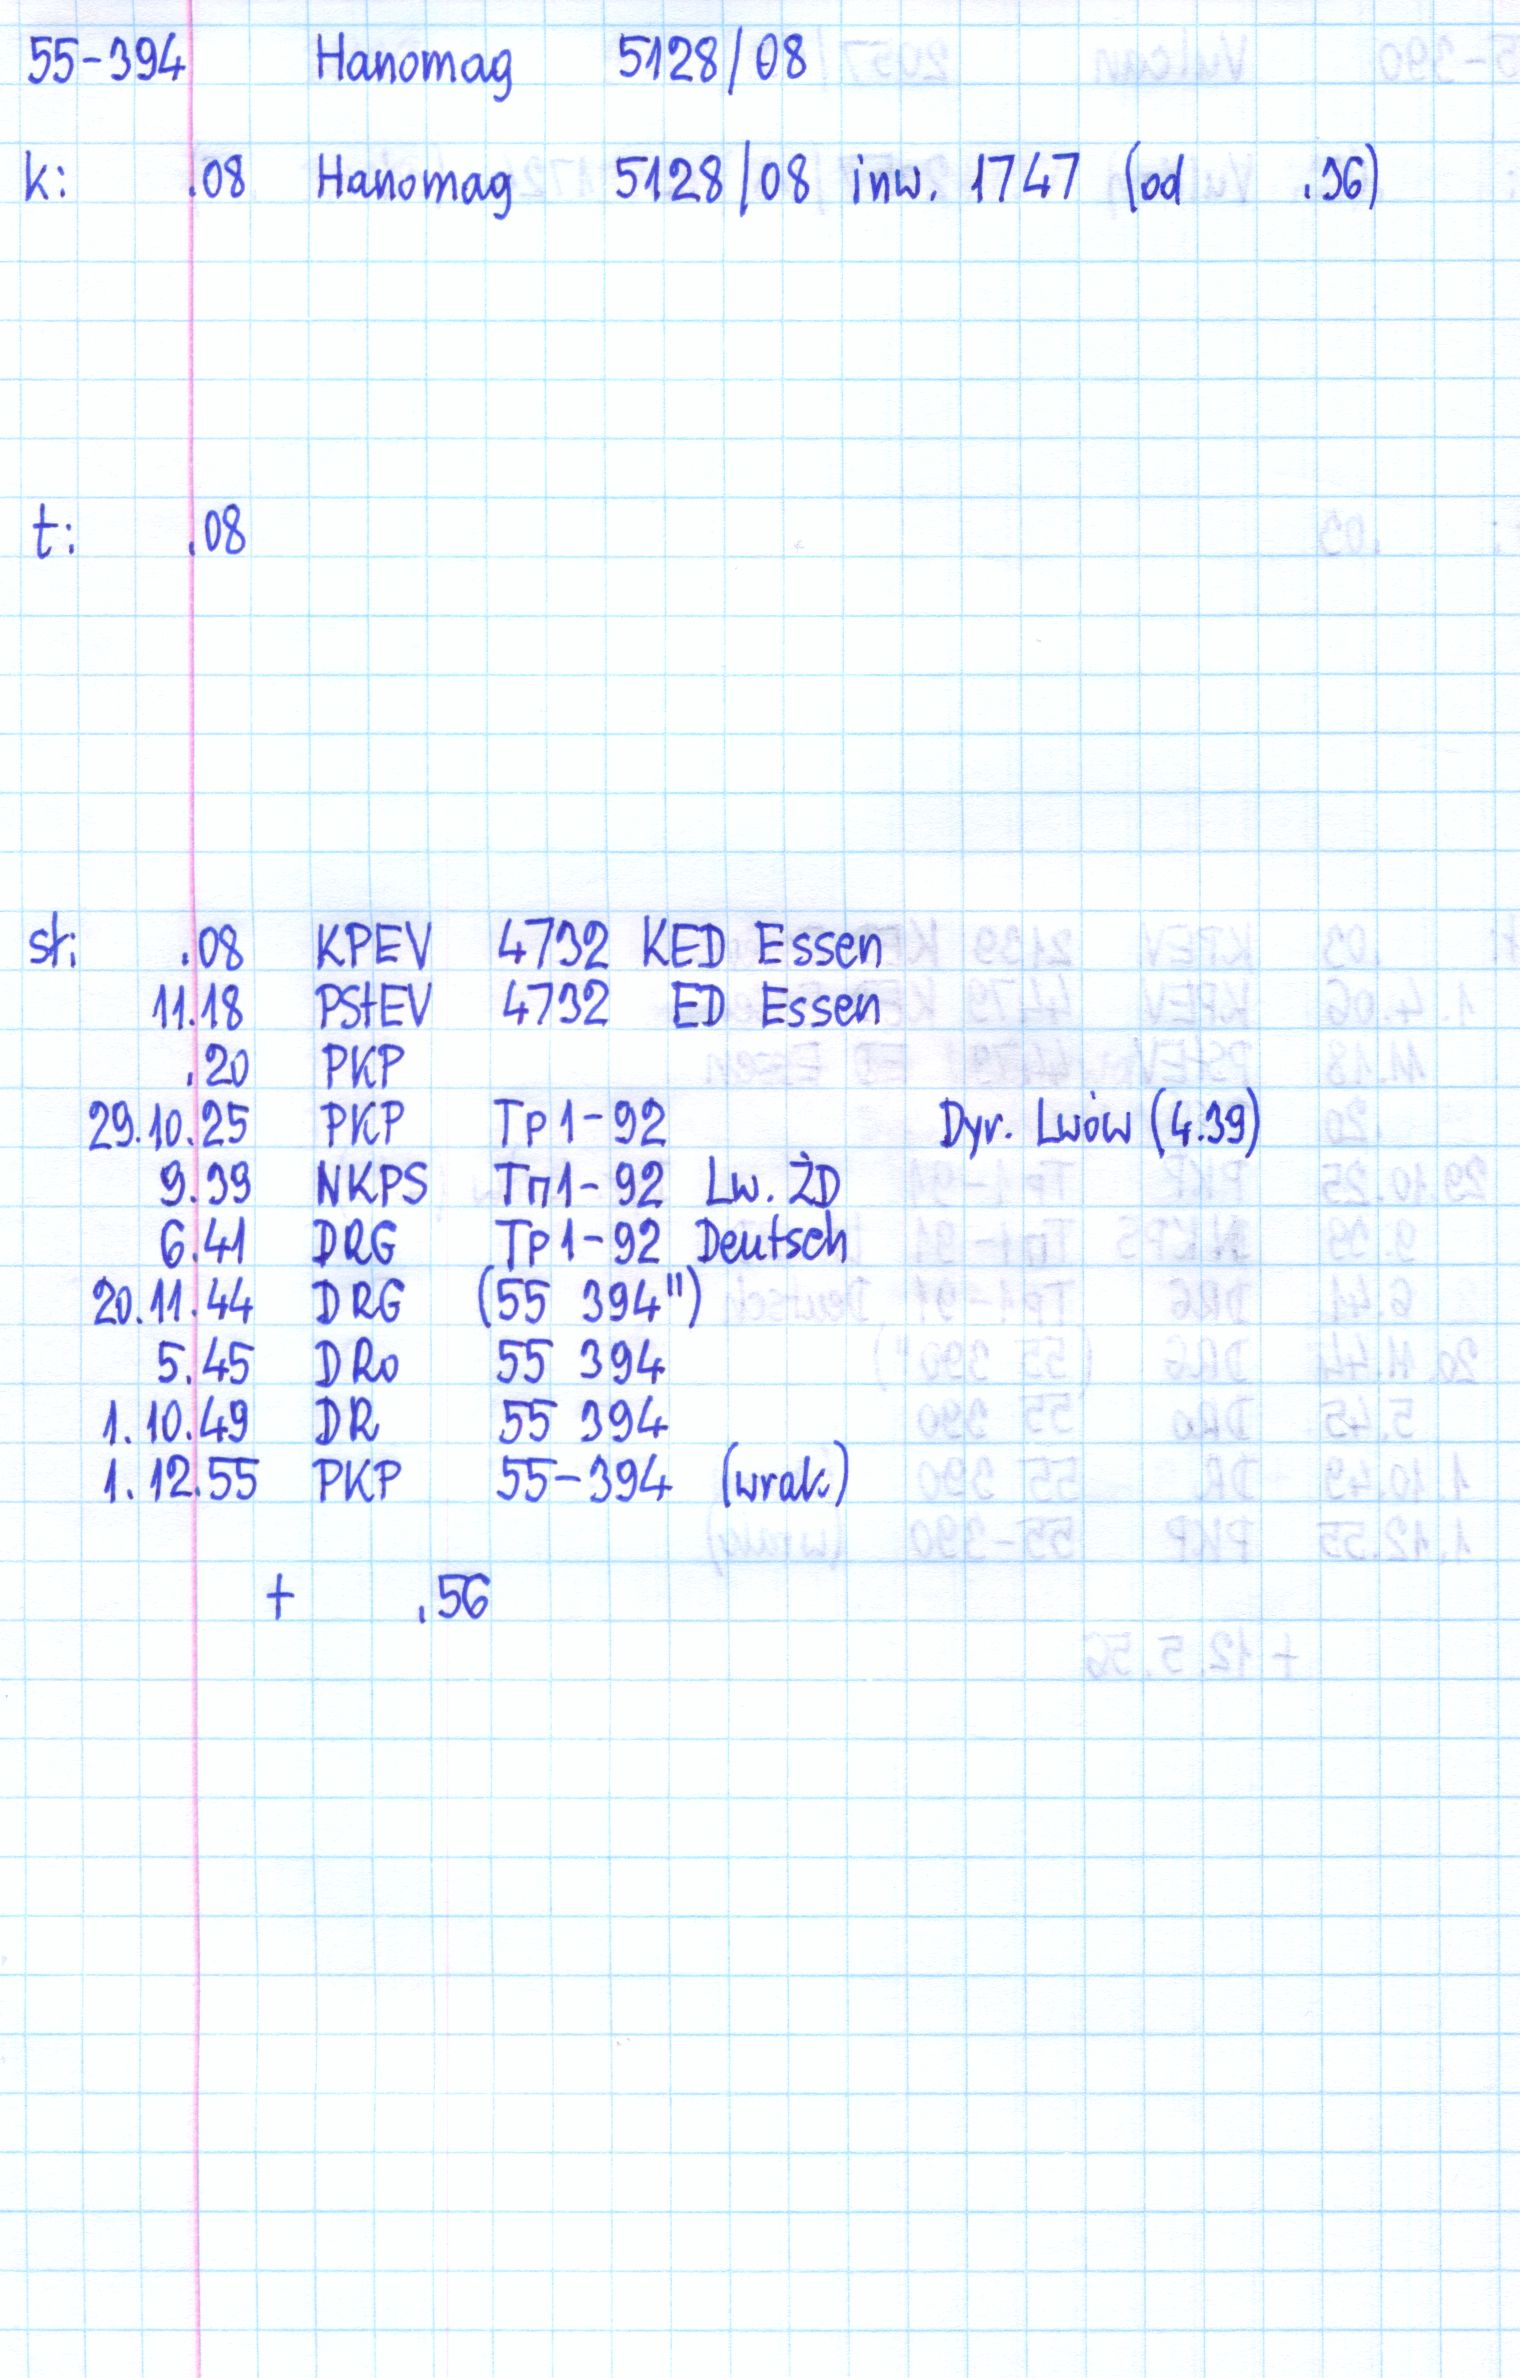 55-394 Hanomag 5128/08
k: .08 Hanomag 5128/08 inw. 1747 (od .36)
t: .08
st: .08 KPEV 4732 KED Essen
11.18 PStEV 4732 ED Essen
.20 PKP
29.10.25 PKP Tp1-92 Dyr. Lwów (4.39)
9.39 NKPS Тп1-92 Lw. ŻD
6.41 DRG Tp1-92 Deutsch
20.11.44 DRG (55 394")
5.45 DRo 55 394
1.10.49 DR 55 394
1.12.55 PKP 55-394 (wrak)
+ .56